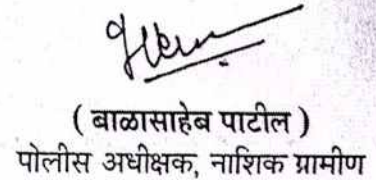 ( बाळासाहेब पाटील )
पोलीस अधीक्षक, नाशिक ग्रामीण